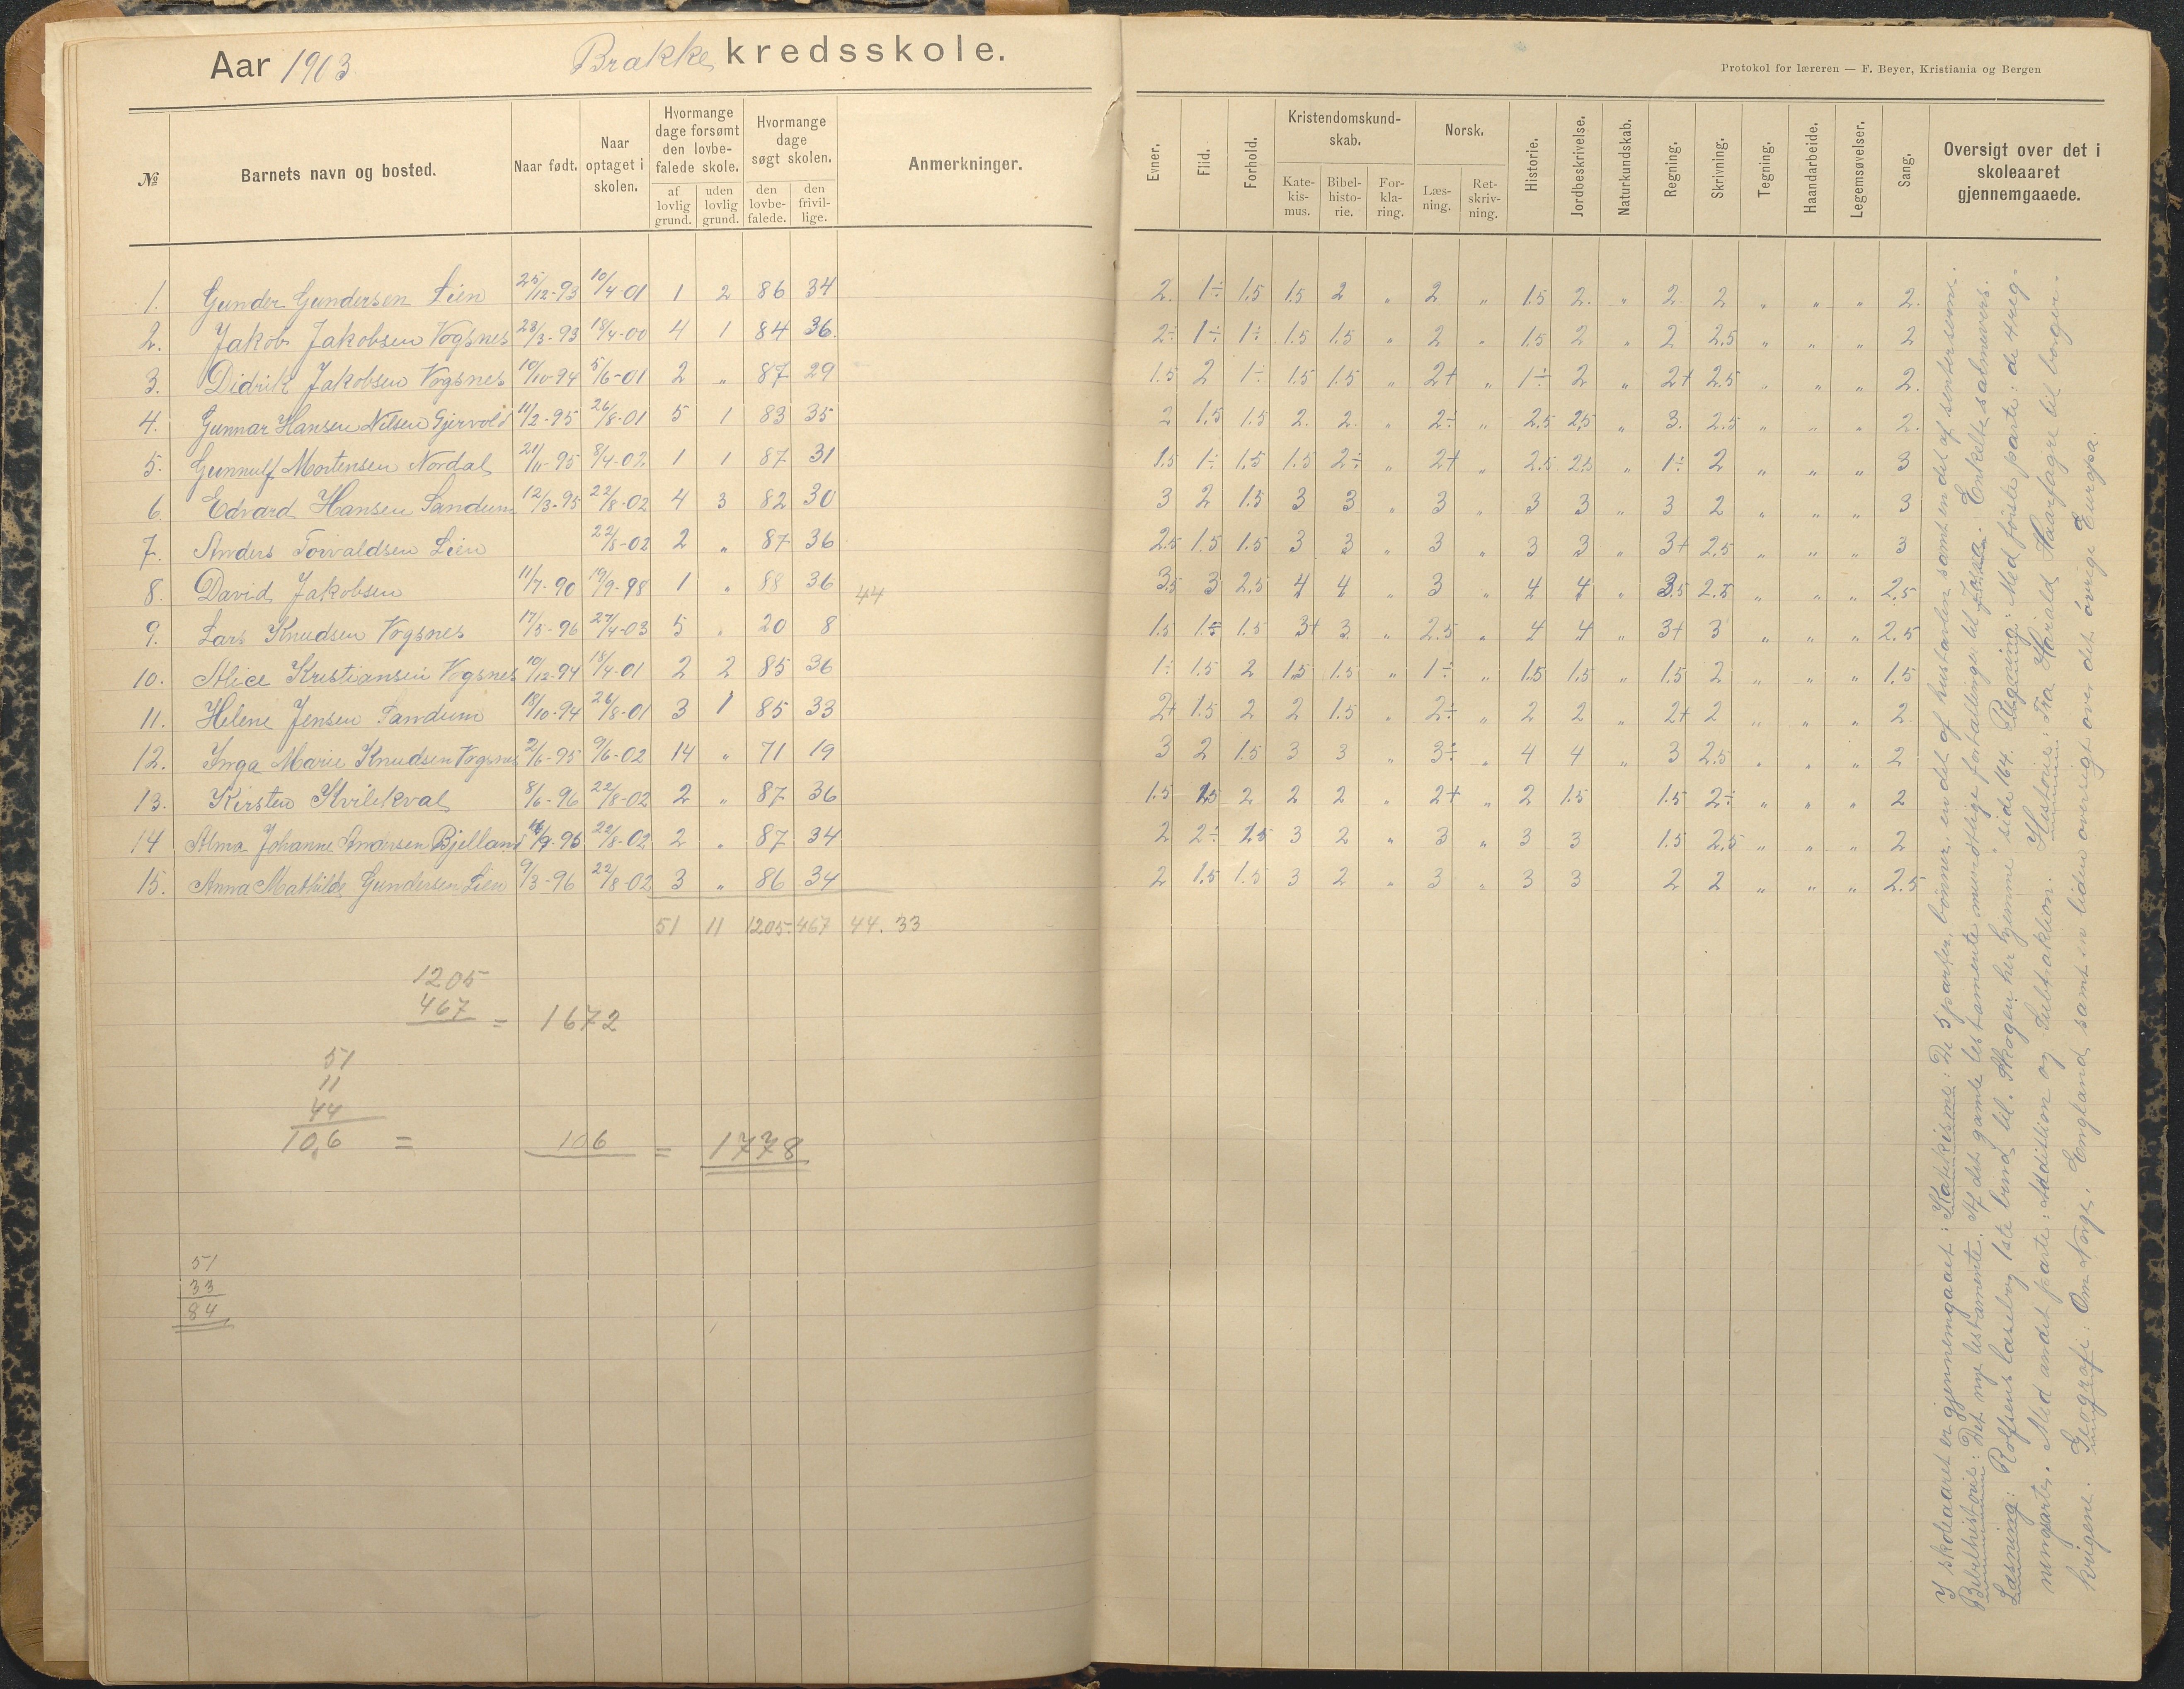 Aar 1903 Brække kredsskole.
Protokol for læreren — F. Beyer, Kristiania og Bergen
№ Barnets navn og bosted. Naar født. Naar optaget i skolen. Hvormange dage forsømt den lovbefalede skole. af lovlig grund. uden lovlig grund. Hvormange dage søgt skolen. den lovbefalede. den frivillige. Anmerkninger.
Evner. Flid. Forhold. Kristendomskundskab. Katekismus. Bibelhistorie. Forklaring. Norsk. Læsning. Retskrivning. Historie. Jordbeskrivelse. Naturkundskab. Regning. Skrivning. Tegning. Haandarbeide. Legemsøvelser. Sang. Oversigt over det i skoleaaret gjennemgaaede.
1. Gunder Gundersen Lien 25/12-93 10/4-01 1 2 86 34 2. 1÷ 1.5 1.5 2 „ 2 „ 1.5 2. „ 2. 2 „ „ „ 2.
2. Jakob Jakobsen Vogsnes 23/3-93 18/4-00 4 1 84 36. 2÷ 1÷ 1÷ 1.5 1.5 „ 2 „ 1.5 2 „ 2 2.5 „ „ „ 2
3. Didrik Jakobsen Vogsnes 10/10-94 5/6-01 2 „ 87 29 1.5 2 1÷ 1.5 1.5 „ 2+ „ 1÷ 2 „ 2+ 2.5 „ „ „ 2.
4. Gunnar Hansen Nilsen Gjervold 11/2-95 26/8-01 5 1 83 35 2 1.5 1.5 2. 2. „ 2÷ „ 2.5 2.5 „ 3. 2.5 „ „ „ 2.
5. Gunnulf Mortensen Nordal 21/11-95 8/4-02. 1 1 87 31 1.5 1÷ 1.5 1.5 2÷ „ 2+ „ 2.5 2.5 „ 1÷ 2 „ „ „ 3
6. Edvard Hansen Sandum 12/3-95 22/8-02 4 3 82 30 3 2 1.5 3 3 „ 3 „ 3 3 „ 3 2 „ „ „ 3
7. Anders Torvaldsen Lien 22/8-02 2 „ 87 36 2.5 1.5 1.5 3 3 „ 3 „ 3 3 „ 3+ 2.5 „ „ „ 3
8. David Jakobsen 11/7-90 19/9-98 1 „ 88 36 44 3.5 3 2.5 4 4 „ 3 „ 4 4 „ 3.5 2.5 „ „ „ 2.5
9. Lars Knudsen Vogsnes 17/5-96 27/4-03 5 „ 20 8 1.5 1.5 1.5 3+ 3 „ 2.5 „ 4 4 „ 3+ 3 „ „ „ 2.5
10. Alice Kristiansen Vogsnes 10/12-94 18/4-01 2 2 85 36 1÷ 1.5 2 1.5 1.5 „ 1÷ „ 1.5 1.5 „ 1.5 2 „ „ „ 1.5
11. Helene Jensen Sandum 18/10-94 26/8-01 3 1 85 33 2+ 1.5 2 2 1.5 „ 2÷ „ 2 2 „ 2+ 2 „ „ „ 2
12. Inga Marie Knudsen Vogsnes 2/6-95 9/6-02 14 „ 71 19 3 2 1.5 3 3 „ 3÷ „ 4 4 „ 3 2.5 „ „ „ 2
13. Kirsten Kvilekval 8/6-96 22/8-02 2 „ 87 36 1.5 1.5 2 2 2 „ 2+ „ 2 1.5 1.5 2÷ „ „ „ 2
14 Alma Johanne Andersen Bjelland 16/9-96 22/8-02 2 „ 87 34 2 2÷ 1.5 3 2 „ 3 „ 3 3 1.5 2.5 „ „ „ 2
15. Anna Mathilde Gundersen Lien 9/3-96 22/8-02 3 „ 86 34 2 1.5 1.5 3 2 „ 3 „ 3 3 2 2 „ „ „ 2.5
51 11 1205 467 44. 33
1205
467 = 1672
51
11
44
106 = 106 = 1778
51
33
84
I skoleaaret er gjennemgaaet: Katekisme: De 5 parter, bønner, en del af hustavlen samt en del af sentensene.
Bibelhistorie: Det nye testamente. Af det gamle testamente mundtlige fortællinger til Josva. Enkelte salmevers.
Læsning: Rolfsens læsebog 1ste bind til „Skogen her hjemme" side 164. Regning: Med første parti: de 4 reg-
ningsarter. Med andet parti: Addition og Subtraktion. Historie: Fra Harald Haarfagre til borger-
krigene. Geografi: Om Norge. England samt en liden oversigt over det øvrige Europa.